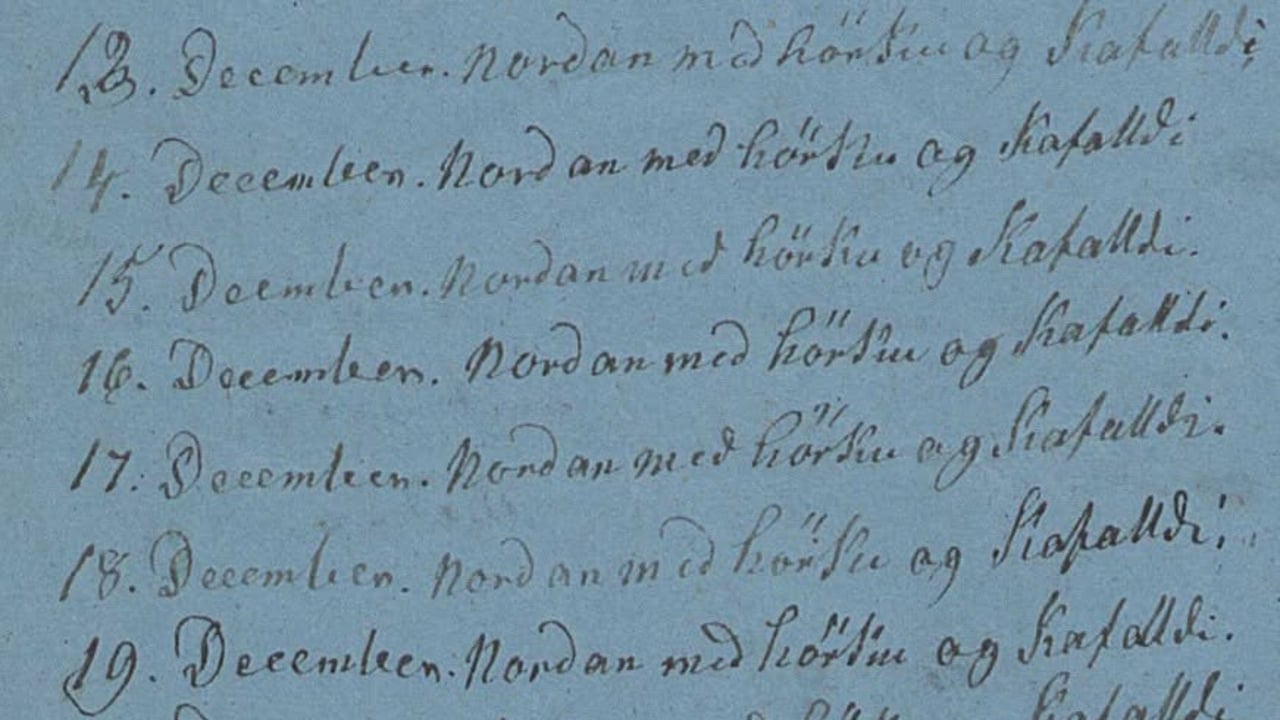 13. December. Nordan með hörku og Kafalldi
14. December. Nordan með hörku og Kafalldi
15. Deember. Nordan með hörku og Kafalldi.
16. December. Nordan með hörku og Kafalldi.
17. December. Nordan með hörku og Kafalldi.
18. December. Nordan með hörku og Kafalldi.
19. December. Nordan með hörku og Kafalldi.
Kafalldi